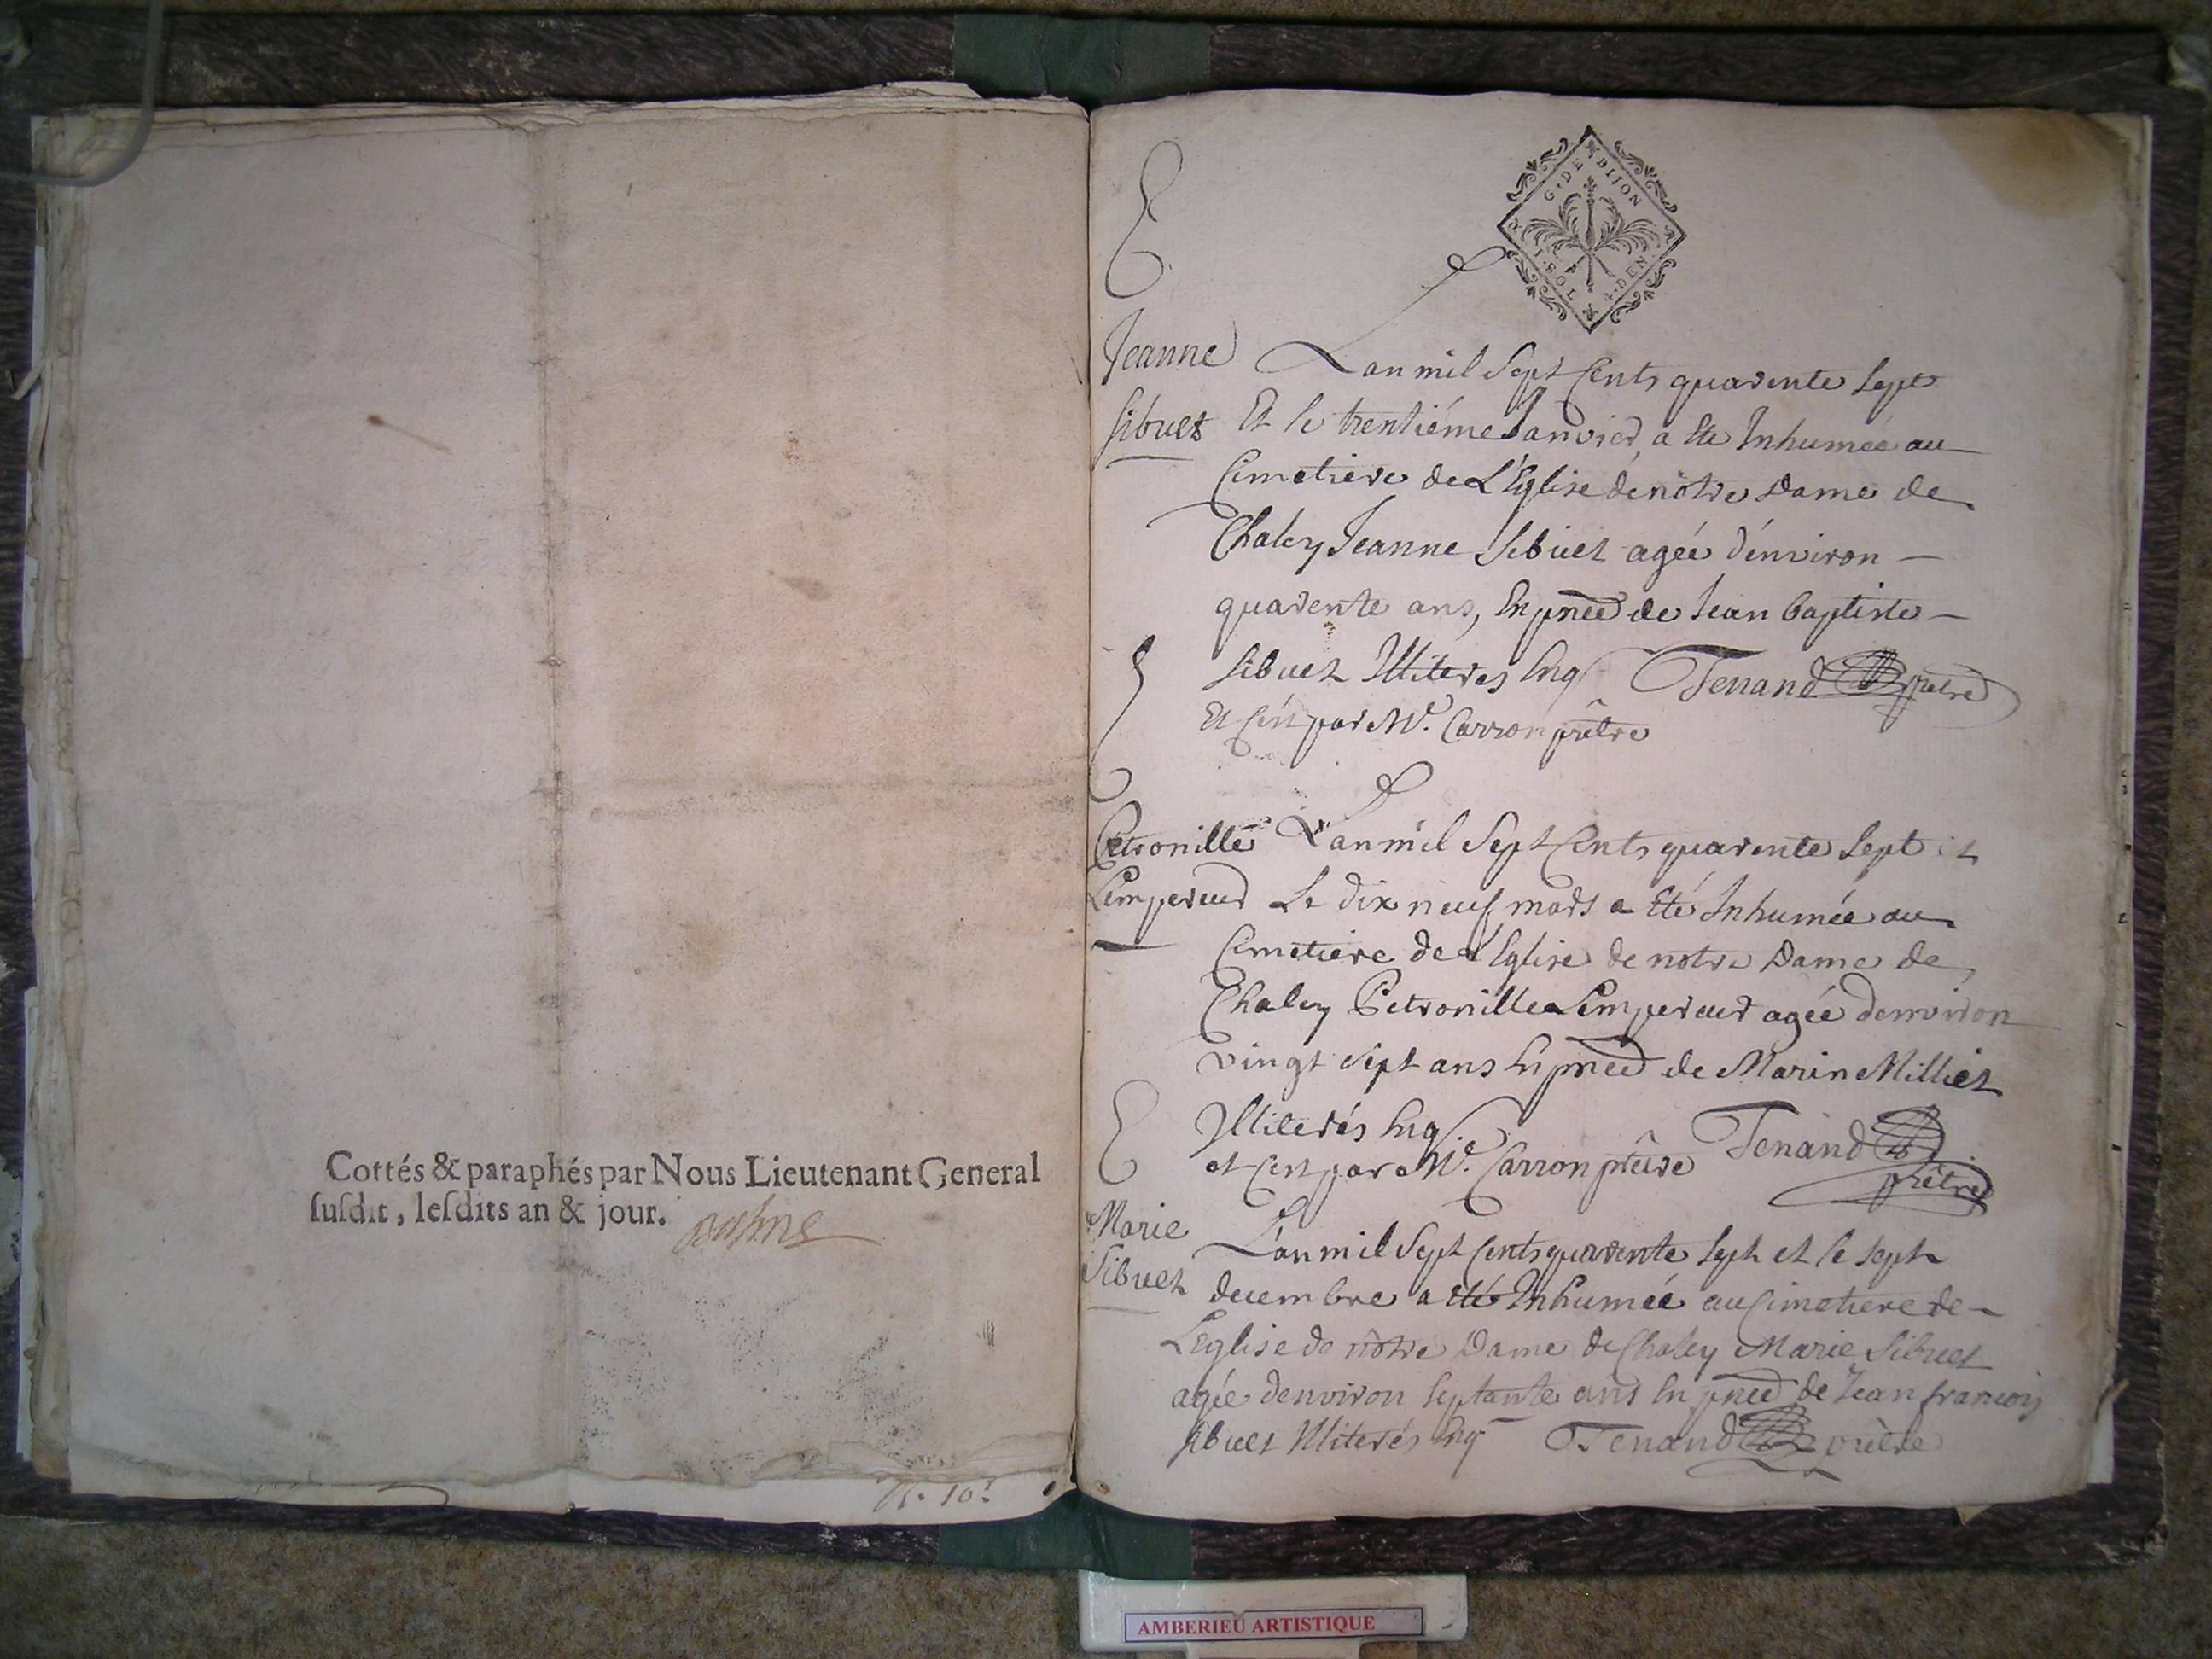 Cottés & paraphés par Nous Lieutenant General
ſuſdit, leſdits an & jour.
G. DE DIJON
1. SOL. 4. DEN.
Jeanne
Sibuet
L'an mil Sept Cents quarente Sept
Et le trentiéme Janvier, a Eté Inhumée au
Cimetiere de L'Eglise de nôtre Dame de
Chaley Jeanne Sibuet agée d'environ
quarente ans, En pnce de Jean Baptiste
Sibuet Illiterés Enq Tenand prêtre
Et C'est par Mre. Carron prêtre
Petronille
Lempereur
L'an mil Sept Cents quarente Sept et
Le dix neuf mars a Eté Inhumée au
Cimetiere de l'Eglise de notre Dame de
Chaley Petronille Lempereur agée denviron
vingt Sept ans En pnce de Marin Milliet
Illiterés Enq Tenand prêtre
et C'est par Mre. Carron prêtre
Marie
Sibuet
L'an mil Sept Cents quarente Sept et le sept
decembre a eté Inhumée au Cimetiere de
L'eglise de nôtre Dame de Chaley Marie Sibuet
agée denviron Septante ans En pnce de Jean francois
Sibuet Illiterés Enq Tenand prêtre
AMBERIEU ARTISTIQUE